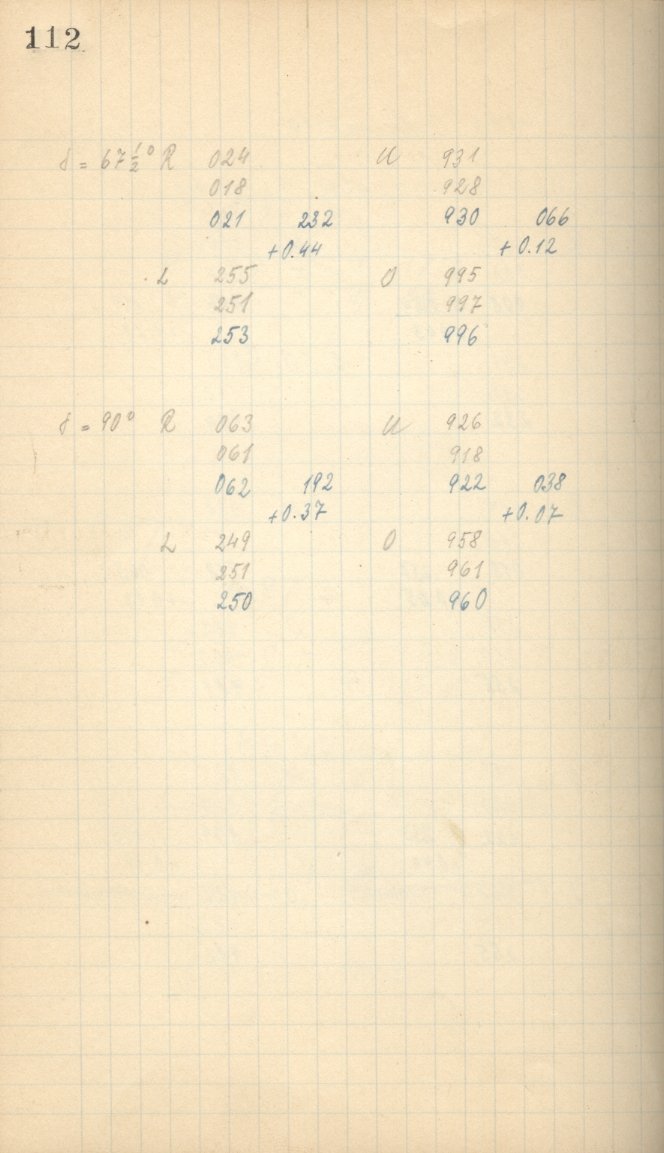 112
δ = 67 1/2° R 024 U 931
018 928
021 232 930 066
+0.44 +0.12
L 255 O 995
251 997
253 996
δ = 90° R 063 U 926
061 918
062 192 922 038
+0.37 +0.07
L 249 O 958
251 961
250 960